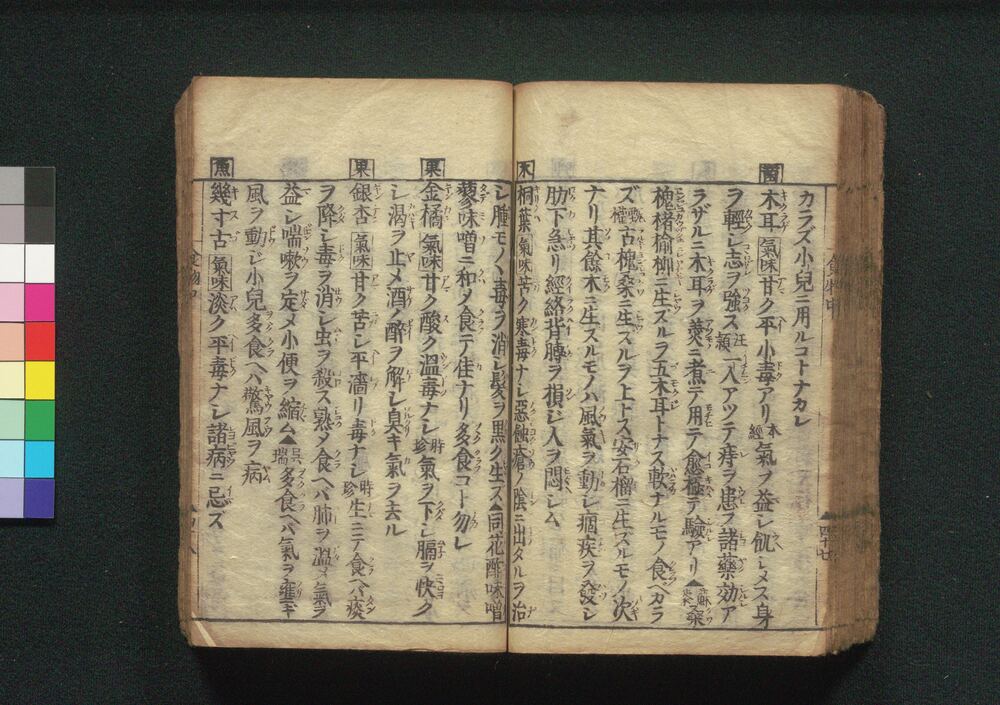 カラズ小兒ニ用ルコトナカレ
菌
木耳 氣味甘ク平小毒アリ 本經 氣ヲ益シ飢シメズ身
ヲ輕シ志ヲ強ス 汪頴 一人アツテ痔ヲ患ヲ諸藥効ア
ラザルニ木耳ヲ羮ニ煮テ用テ愈極テ驗アリ▲蘇恭 桑
槐楮榆柳ニ生ズルヲ五木耳トナス軟ナルモノ食ベカラ
ズ 甄權 古槐桑ニ生ズルヲ上トス安石榴ニ生ズルモノ次
ナリ其餘木ニ生スルモノハ風氣ヲ動シ痼疾ヲ發シ
肋下急リ經絡背膊ヲ損ジ人ヲ悶シム
木
桐葉 氣味苦ク寒毒ナシ惡蝕瘡ノ陰ニ出タルヲ治
シ腫モノヽ毒ヲ消シ髮ヲ黒ク生ズ▲同花酢味噌
蓼味噌ニ和メ食テ佳ナリ多食コト勿レ
菓
金橘 氣味甘ク酸ク溫毒ナシ 時珍 氣ヲ下シ膈ヲ快ク
シ渴ヲ止メ酒ノ醉ヲ解シ臭キ氣ヲ去ル
果
銀杏 氣味甘ク苦シ平濇リ毒ナシ 時珍 生ニテ食ヘバ痰
ヲ降シ毒ヲ消シ虫ヲ殺ス熟メ食ヘバ肺ヲ溫メ氣ヲ
益シ喘嗽ヲ定メ小便ヲ縮ム▲呉瑞 多食ヘバ氣ヲ壅ギ
風ヲ動ジ小兒多食ヘバ驚風ヲ病
魚
幾寸古 氣味淡ク平毒ナシ諸病ニ忌ズ
食物中
四十七